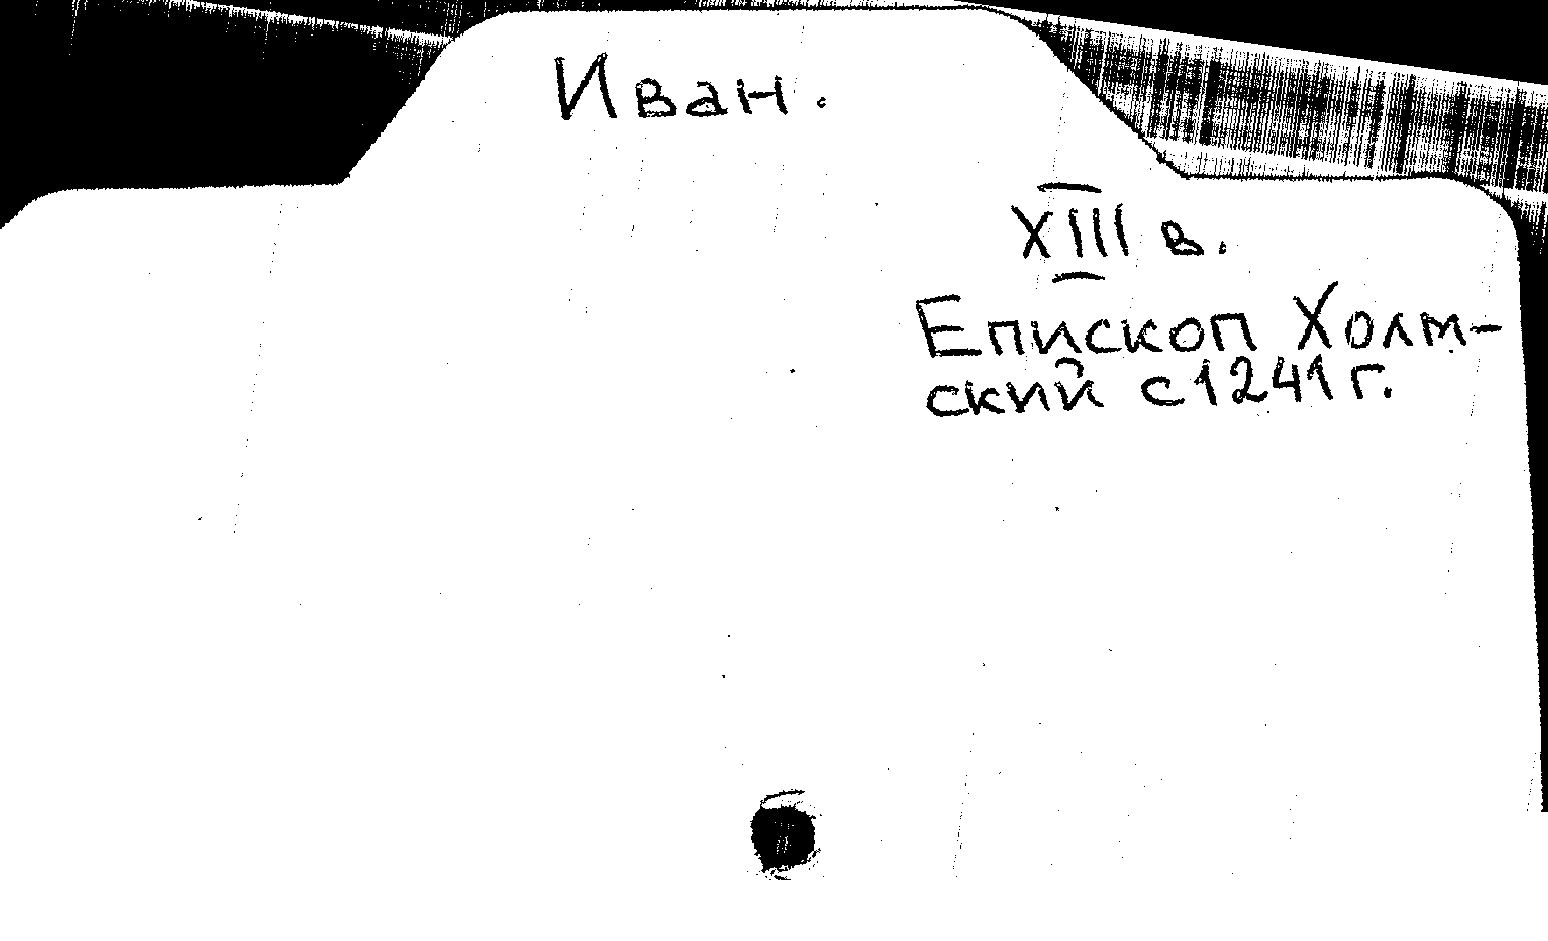 Иван.
XIII в.
Епископ Холм-
ский с 1241 г.